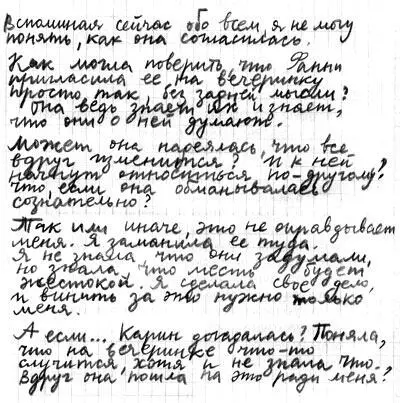 Вспоминая сейчас обо всем, я не могу
понять, как она согласилась.
Как могла поверить, что Фанни
пригласила ее на вечеринку
просто так, без задней мысли?
Она ведь знает их и знает,
что они о ней думают.
Может она надеялась, что все
вдруг изменится? И к ней
начнут относиться по-другому?
Что, если она обманывалась
сознательно?
Так или иначе, это не оправдывает
меня. Я заманила ее туда.
Я не знала что они задумали,
но знала что месть будет
жестокой. Я сделала свое дело,
и винить за это нужно только
меня.
А если... Карин догадалась? Поняла,
что на вечеринке что-то
случится, хотя и не знала что.
Вдруг она пошла на это ради меня?